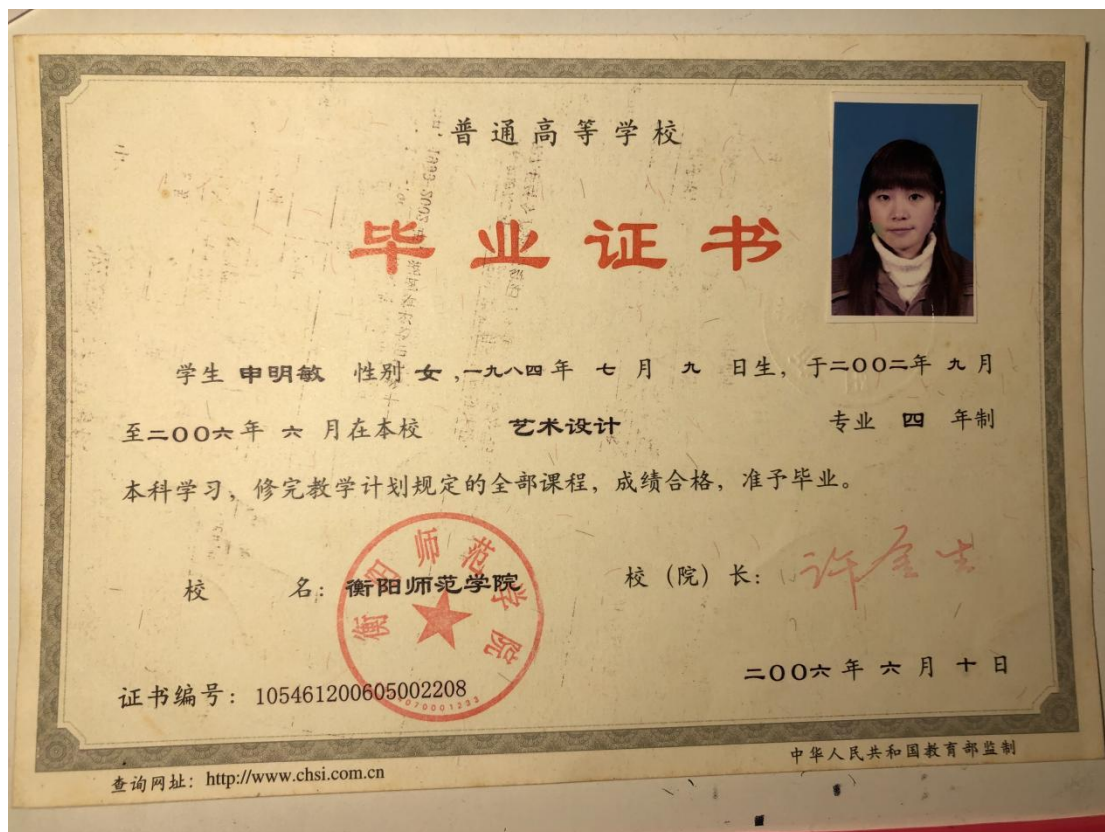 普通高等学校
毕业证书
学生 申明敏 性别 女 ,一九八四年 七 月 九 日生, 于二〇〇二年 九 月
至二〇〇六年 六 月在本校 艺术设计 专业 四 年制
本科学习, 修完教学计划规定的全部课程, 成绩合格, 准予毕业。
校 名: 衡阳师范学院
校 (院) 长:
衡阳师范学院
二〇〇六年 六 月 十 日
证书编号: 105461200605002208
中华人民共和国教育部监制
查询网址: http://www.chsi.com.cn